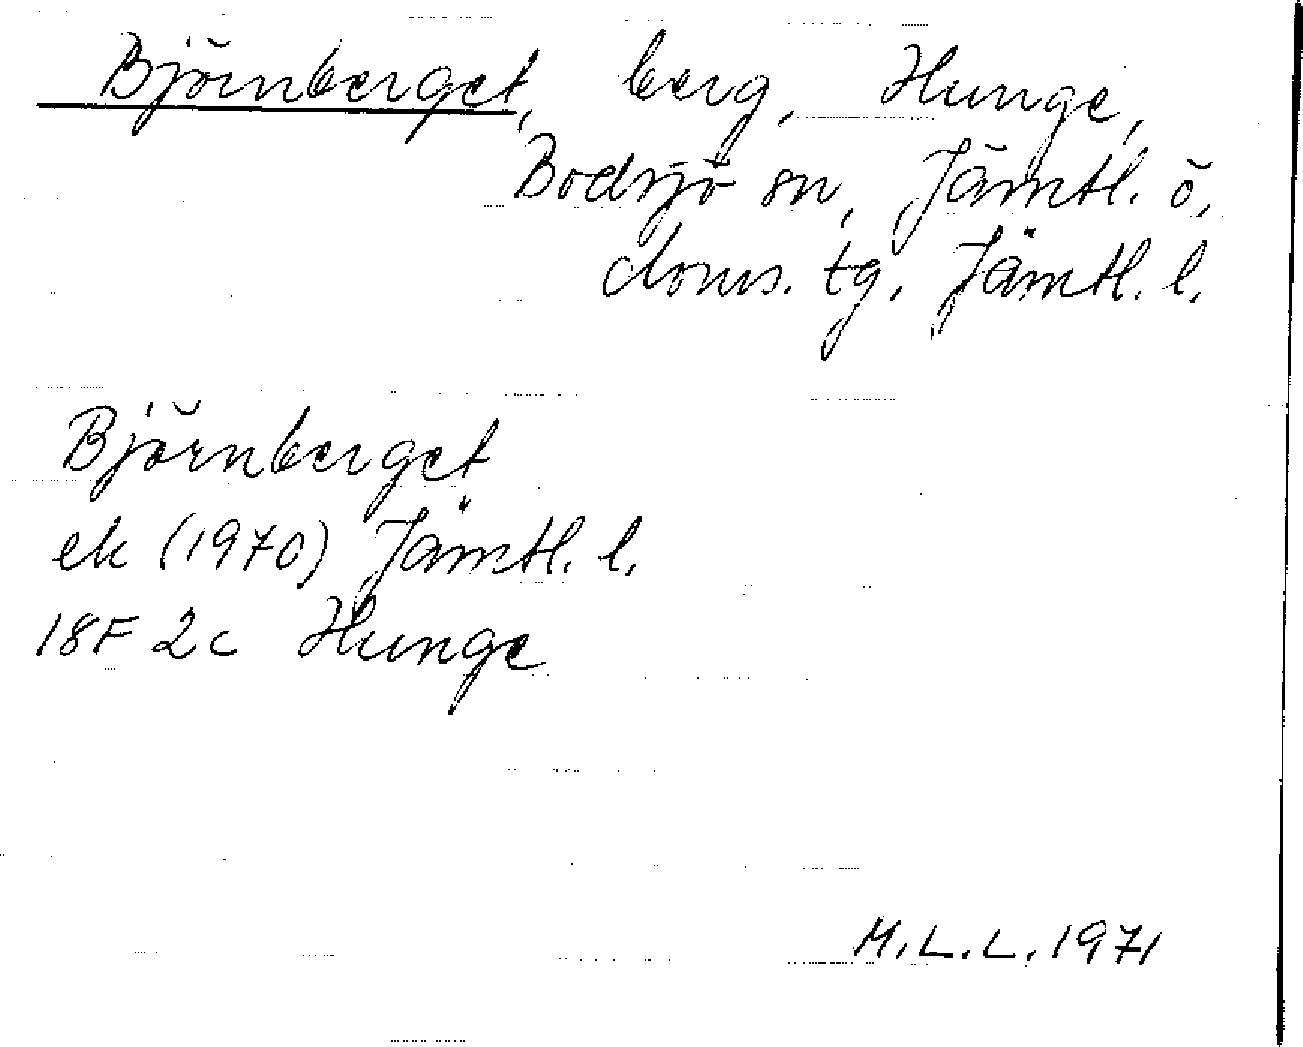 Björnberget, berg, Hunge,
Bodsjö sn, Jämtl. ö.
doms. tg, Jämtl. l.
Björnberget
ek (1970) Jämtl. l.
18F 2c Hunge
M.L.L. 1971